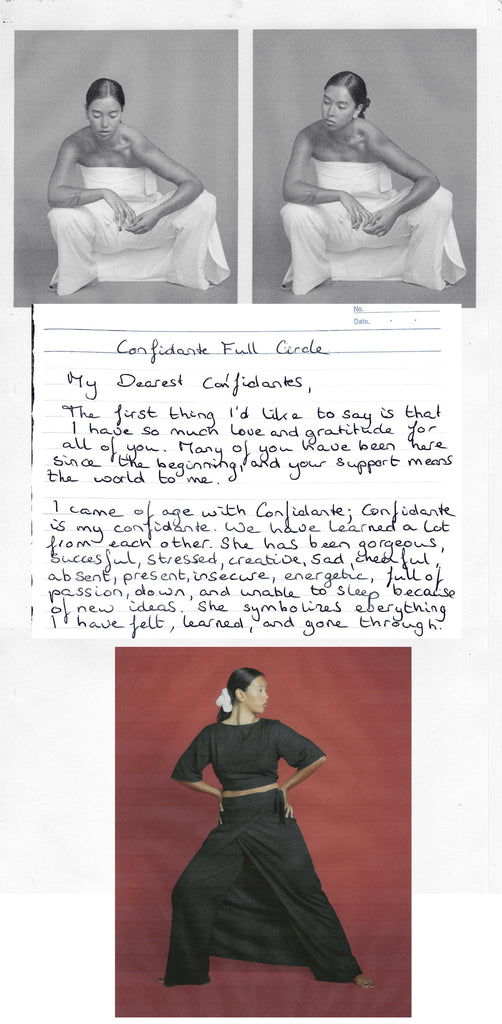 No.
Date. . .
Confidante Full Circle
My Dearest Confidantes,
The first thing I'd like to say is that
I have so much love and gratitude for
all of you. Many of you have been here
since the beginning, and your support means
the world to me.
I came of age with Confidante; Confidante
is my confidante. We have learned a lot
from each other. She has been gorgeous,
succesful, stressed, creative, sad, cheerful,
absent, present, insecure, energetic, full of
passion, down, and unable to sleep because
of new ideas. She symbolizes everything
I have felt, learned, and gone through.